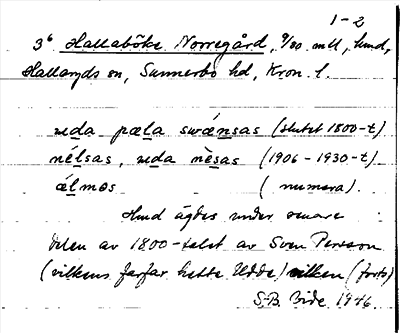 1-2
3⁶ Hallaböke Norregård, 9/80 mtl, hmd,
Hallaryds sn, Sunnerbo hd, Kron. l.
uda pæla swænsas (slutet 1800-t)
nélsas, uda nèsas (1906-1930-t)
ælmas (numera).
Hmd ägdes under senare
delen av 1800-talet av Sven Persson
(vilkens farfar hette Udde) vilken (forts)
S.B. Vide 1946.